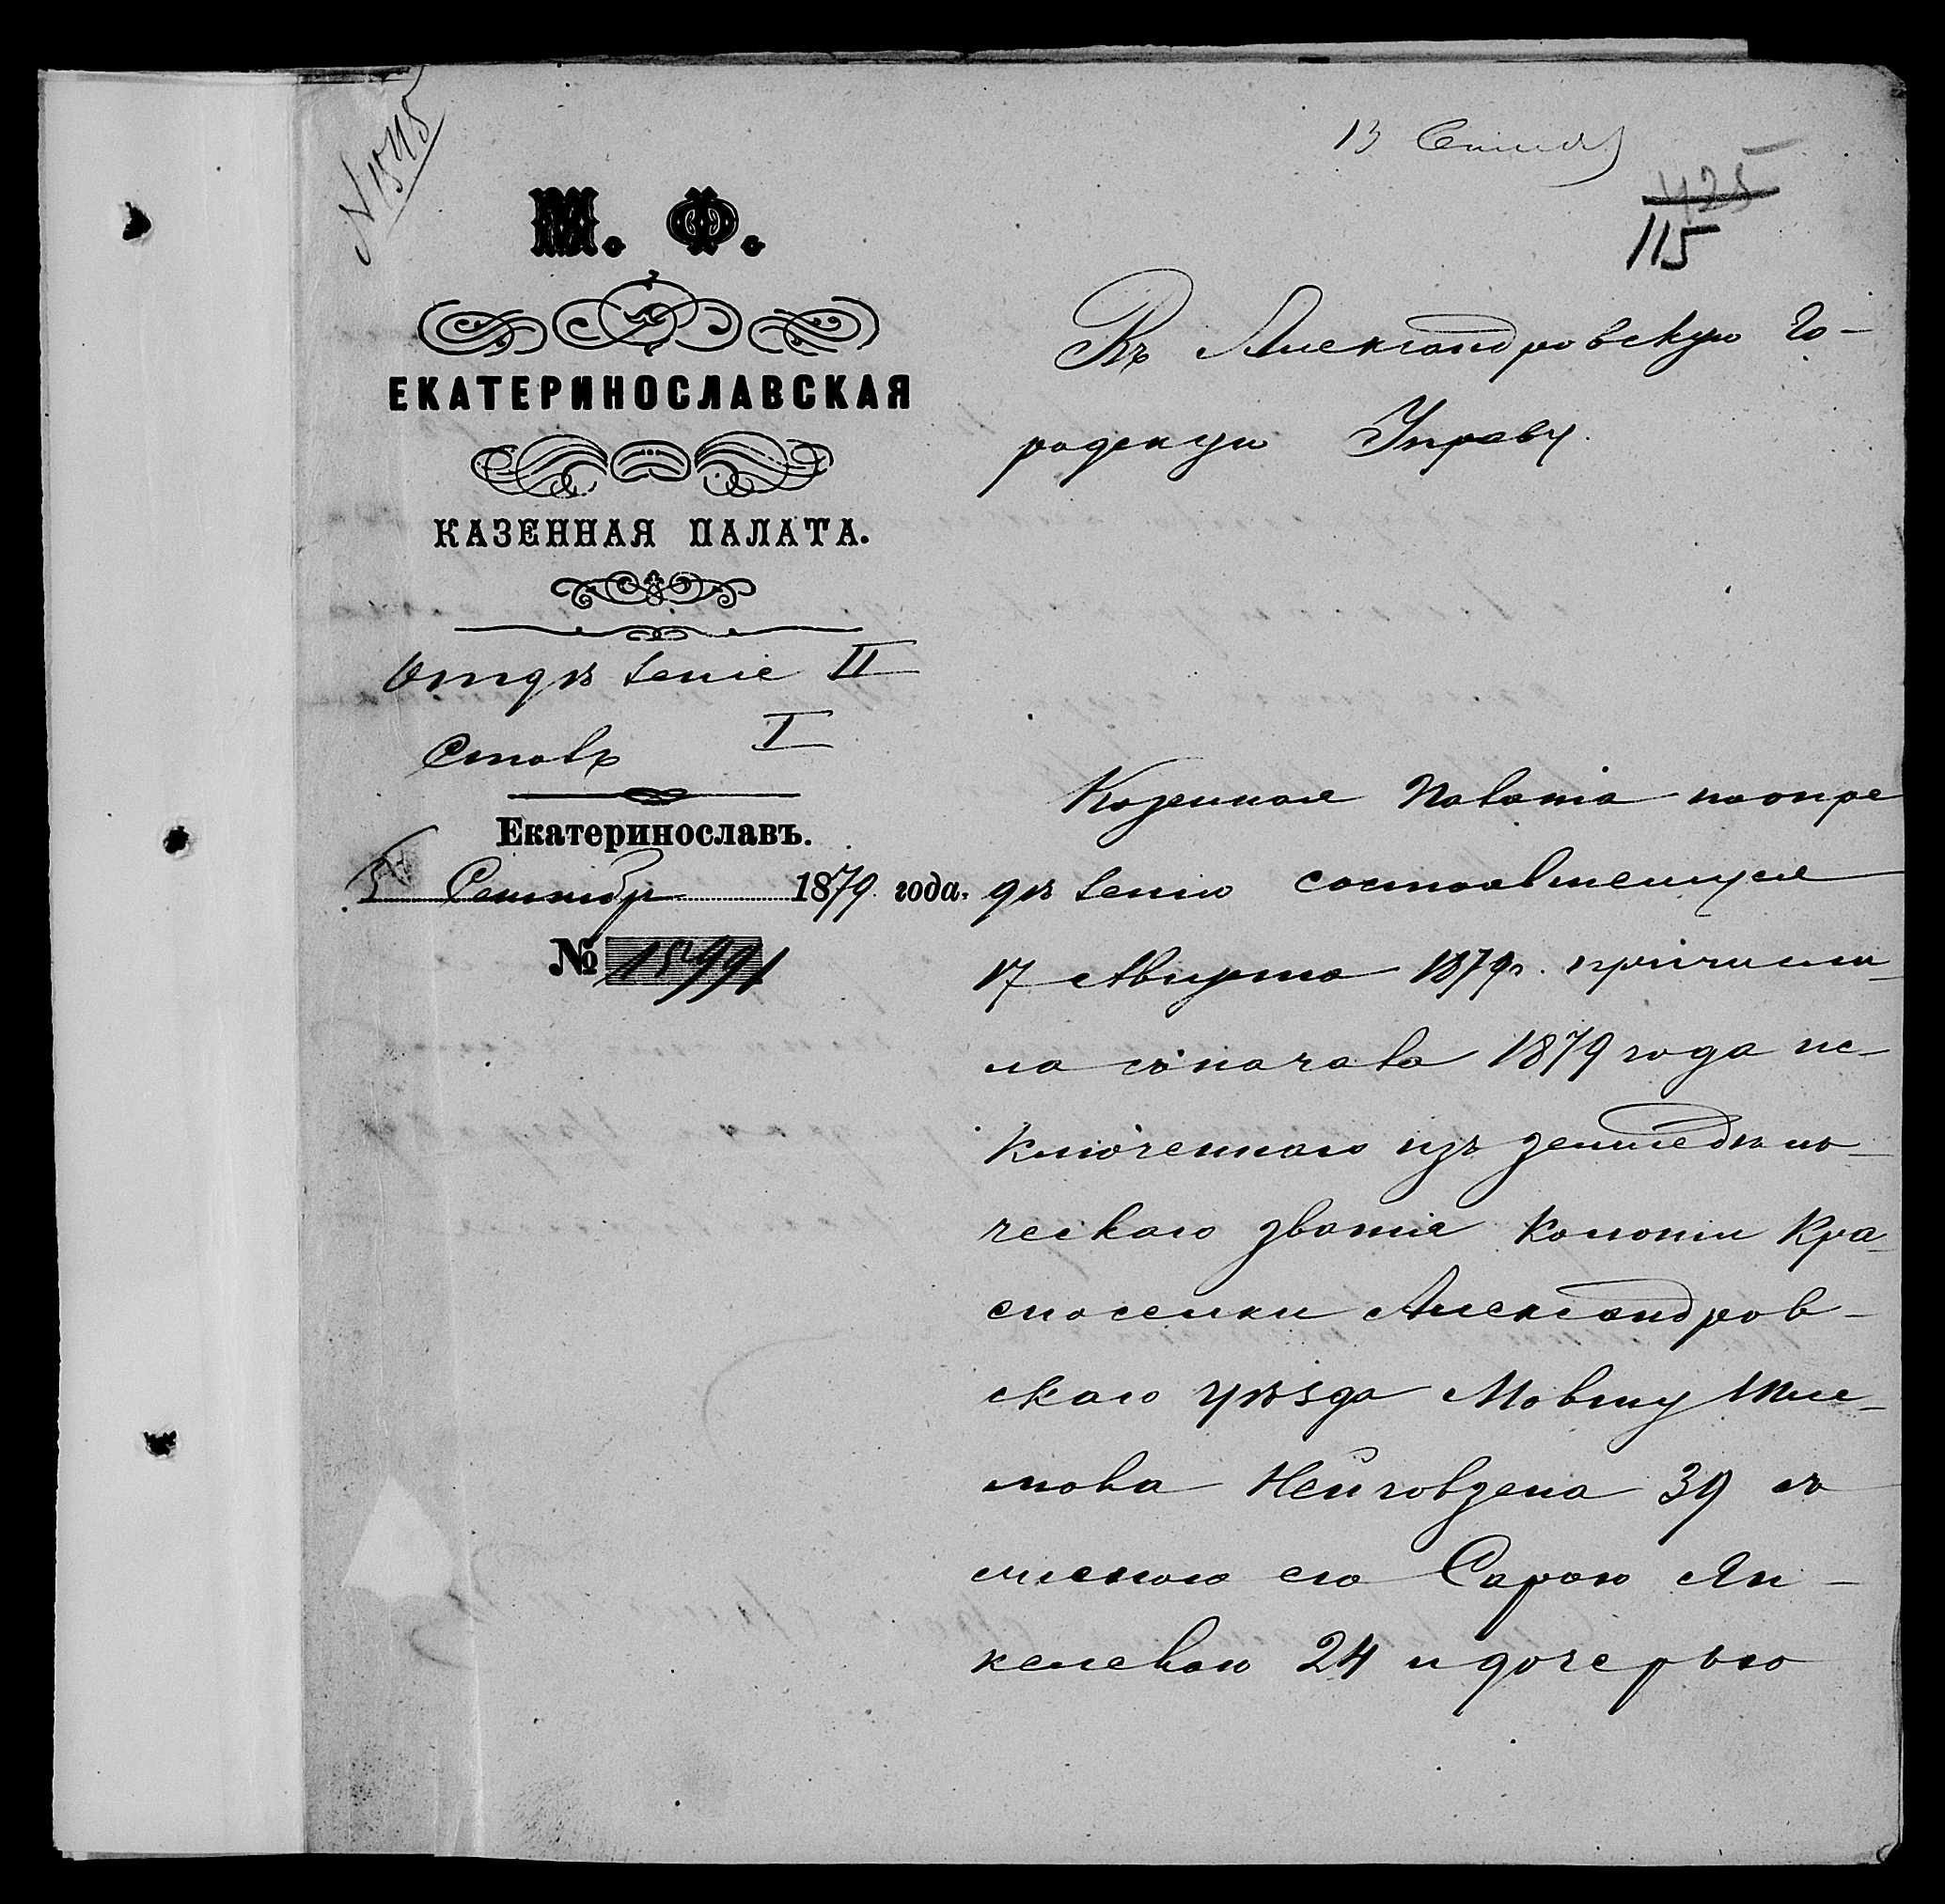 № 1545
13 Сентяб
425
115
М. Ф.
ЕКАТЕРИНОСЛАВСКАЯ
КАЗЕННАЯ ПАЛАТА.
Отдѣленіе II
Столъ I
Екатеринославъ.
5 Сентябр 1879 года.
№ 15991
Въ Александровскую Го-
родскую Управу.
Казенная Палата по опре
дѣленію состоявшемуся
17 Августа 1879 г. причисли-
ла съ начала 1879 года ис-
ключеннаго изъ земледѣль-
ческаго званія колоніи Кра-
сноселки Александров-
скаго уѣзда Мовшу Шле-
мова Нейговзена 39 съ
женою его Сарою Ян-
келевою 24 и дочерью